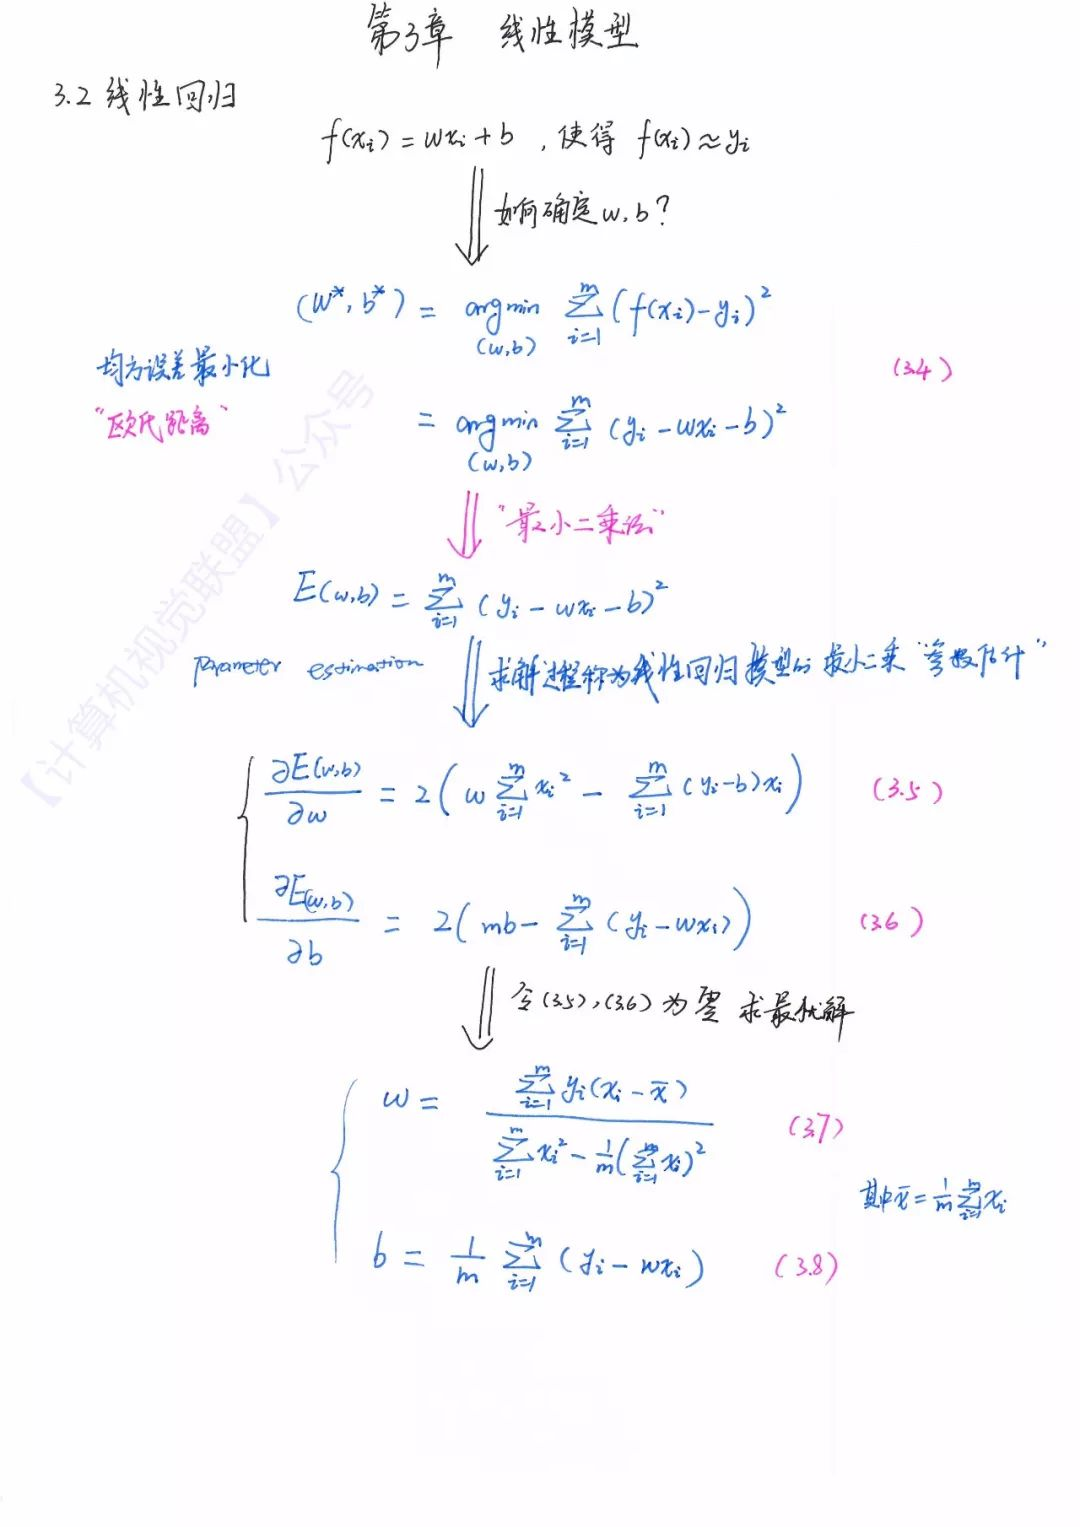 第3章 线性模型
3.2 线性回归
f(xᵢ) = wxᵢ + b , 使得 f(xᵢ) ≈ yᵢ
如何确定w, b?
(w*, b*) = arg min_(w,b) ∑_{i=1}^{m} (f(xᵢ) - yᵢ)²
均方误差最小化
(3.4)
"欧氏距离"
= arg min_(w,b) ∑_{i=1}^{m} (yᵢ - wxᵢ - b)²
"最小二乘法"
E(w,b) = ∑_{i=1}^{m} (yᵢ - wxᵢ - b)²
Parameter estimation 求解过程称为线性回归模型的最小二乘"参数估计"
∂E(w,b)/∂w = 2(w ∑_{i=1}^{m} xᵢ² - ∑_{i=1}^{m} (yᵢ - b)xᵢ) (3.5)
∂E(w,b)/∂b = 2(mb - ∑_{i=1}^{m} (yᵢ - wxᵢ)) (3.6)
令(3.5), (3.6)为零 求最优解
w = ∑_{i=1}^{m} yᵢ(xᵢ - x̄) / (∑_{i=1}^{m} xᵢ² - 1/m(∑_{i=1}^{m} xᵢ)²) (3.7)
其中x̄ = 1/m ∑_{i=1}^{m} xᵢ
b = 1/m ∑_{i=1}^{m} (yᵢ - wxᵢ) (3.8)
【计算机视觉联盟】公众号